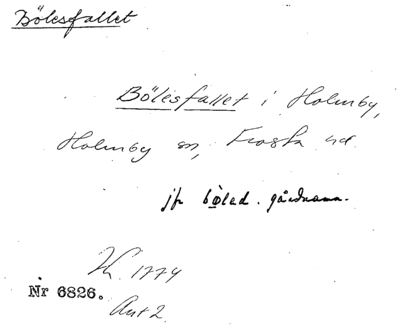 Bölesfallet
Bölesfallet i Holmby,
Holmby sn, Frosta hd.
jfr bøled. gårdnamn.
1774
Nr 6826.
Akt 2